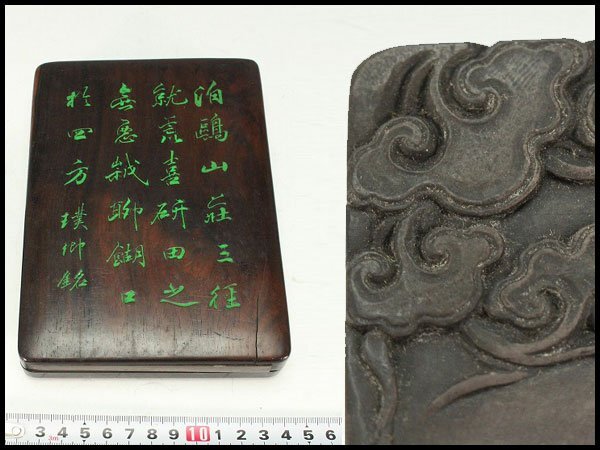 泊鷗山莊三徑
就荒喜研田之
無惡歲聊餬口
於四方 璞卿銘
3 4 5 6 7 8 9 10 1 2 3 4 5 6
3m